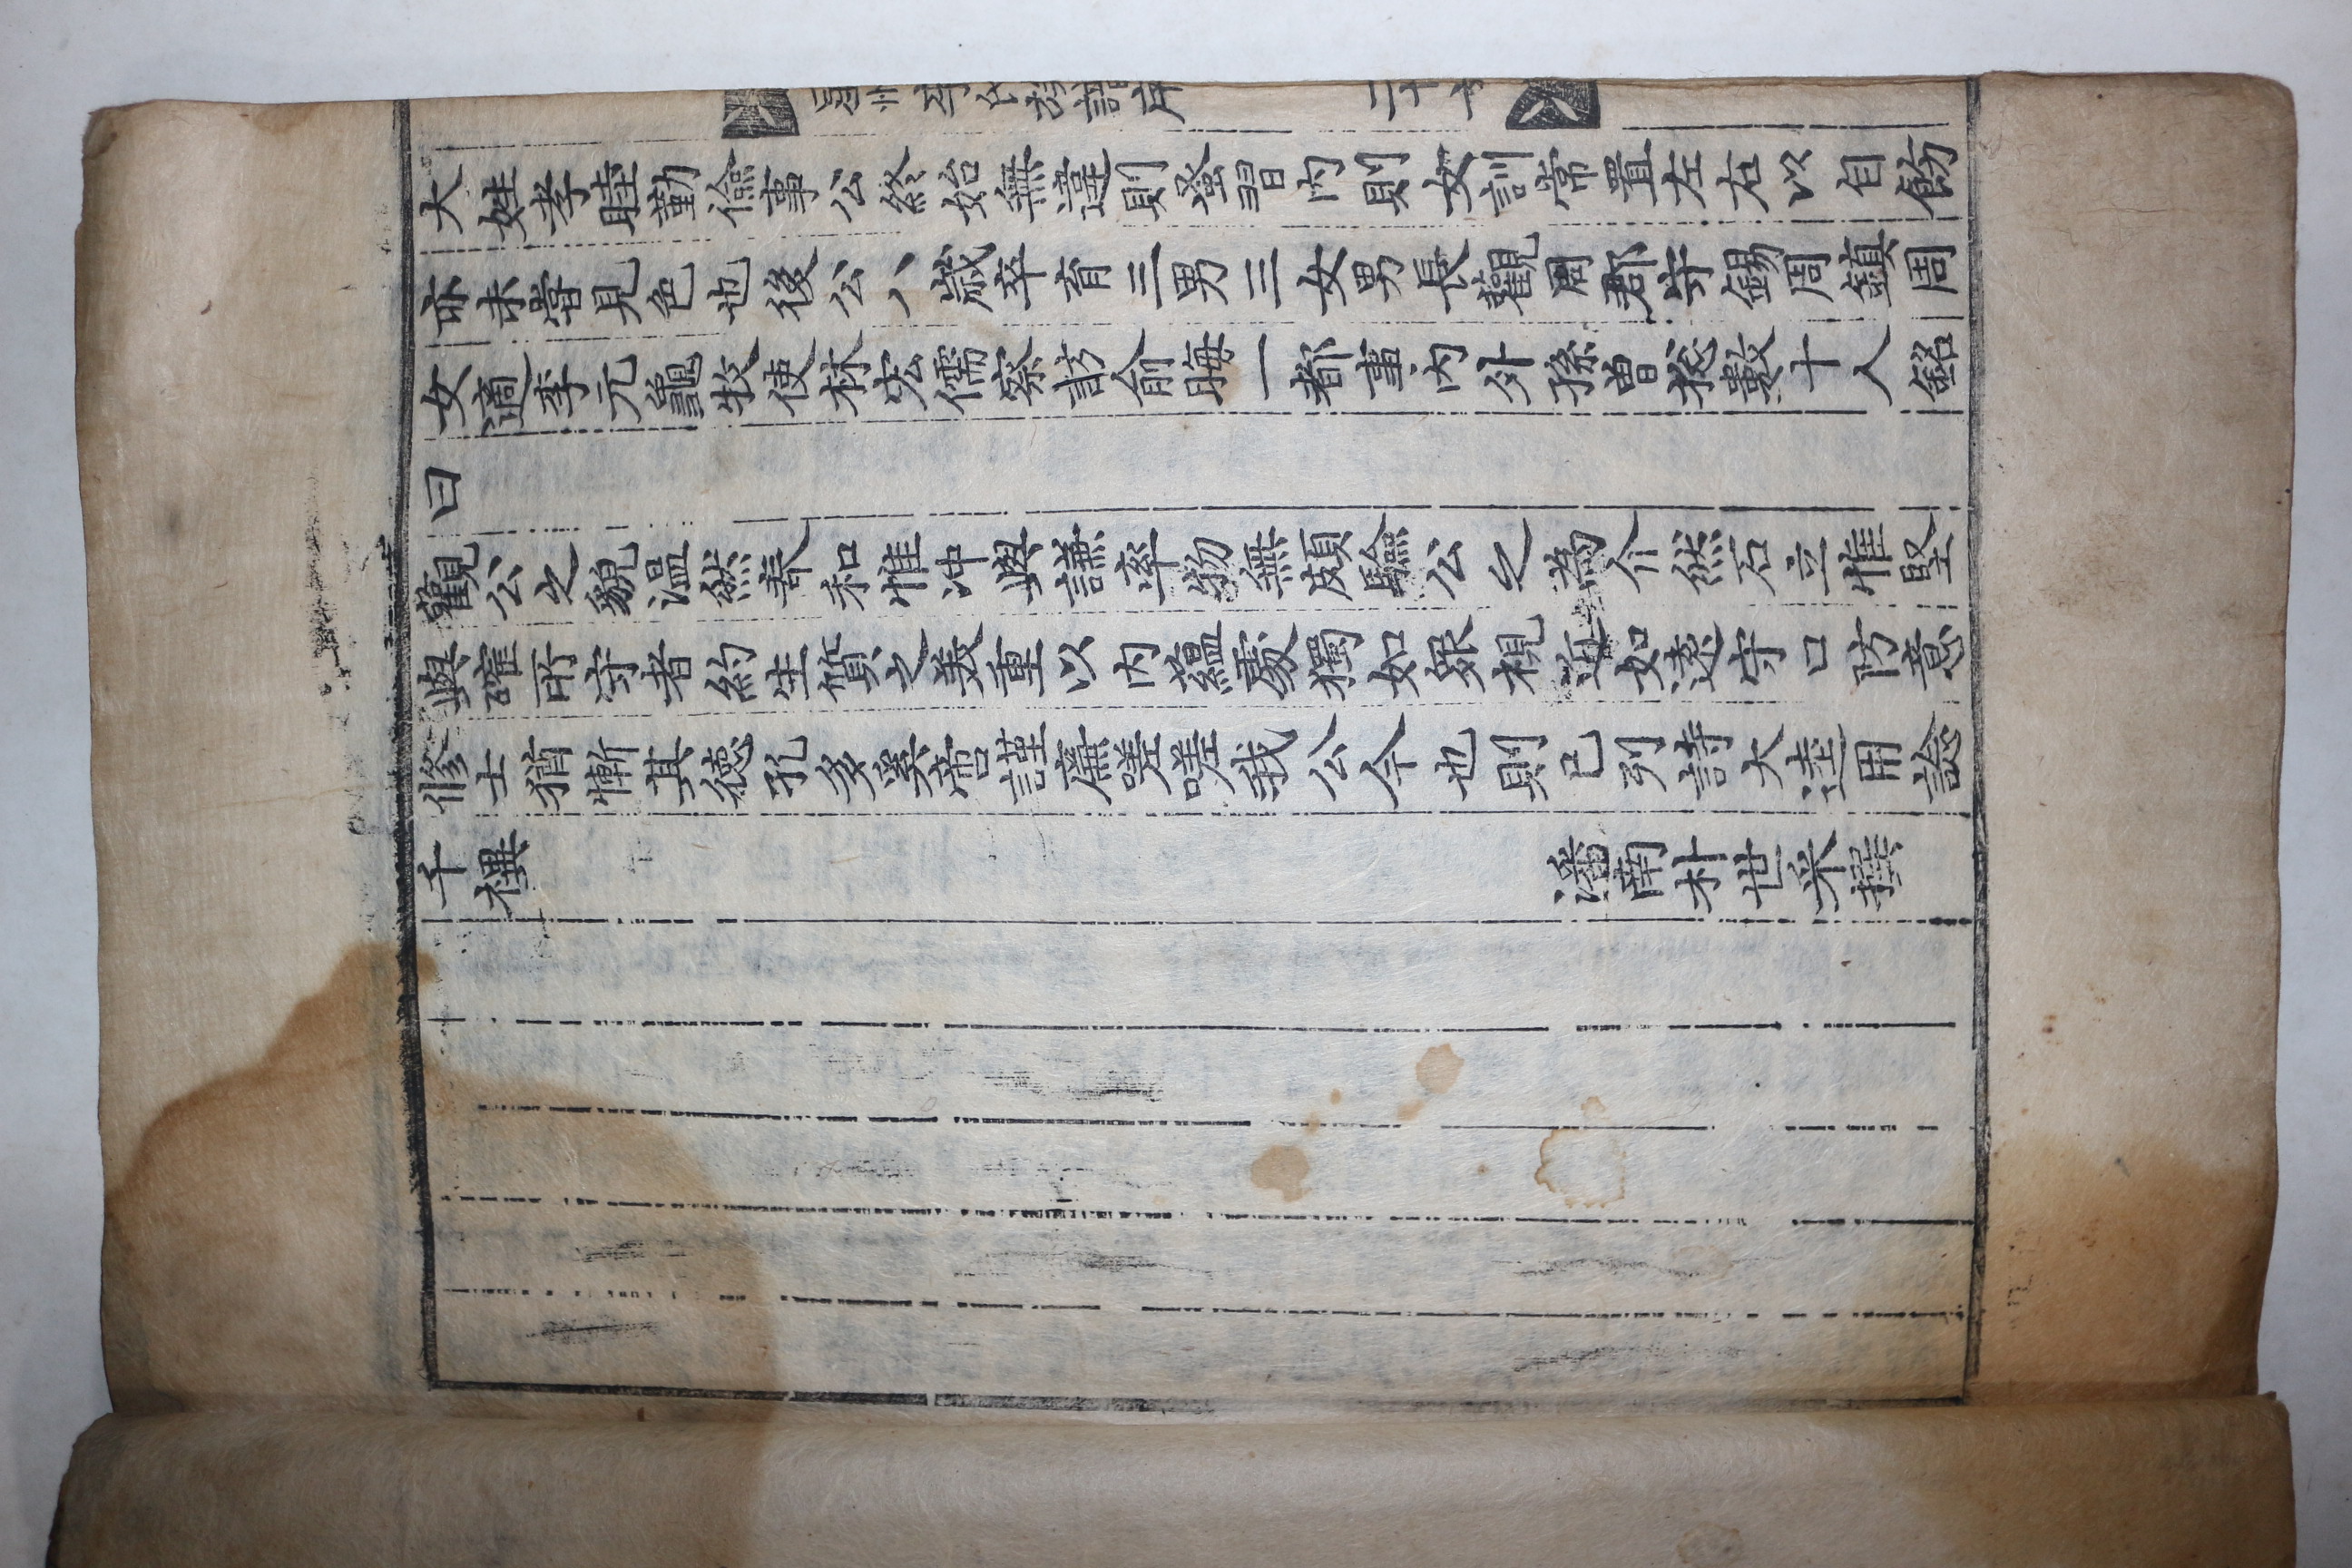 大姓孝睦勤儉事公終始無違則發習內則女訓常置左右以自飭
亦未嘗見色也後公八歲卒育三男三女男長觀周郡守錫周鎮周
女適李元龜牧使林宏儒察訪俞晦一都事內外孫曾揔數十人銘
曰
觀公之貌溫然春和惟沖與謙率物無頗驗公之為介然石立惟堅
與確所守者約生質之美重以內蘊處獨如衆視邇如遠守口防意
修士猶慚其德孔多奚啻謹廉嗟嗟我公今也則已列詩大逵用諗
千禩 潘南朴世采撰